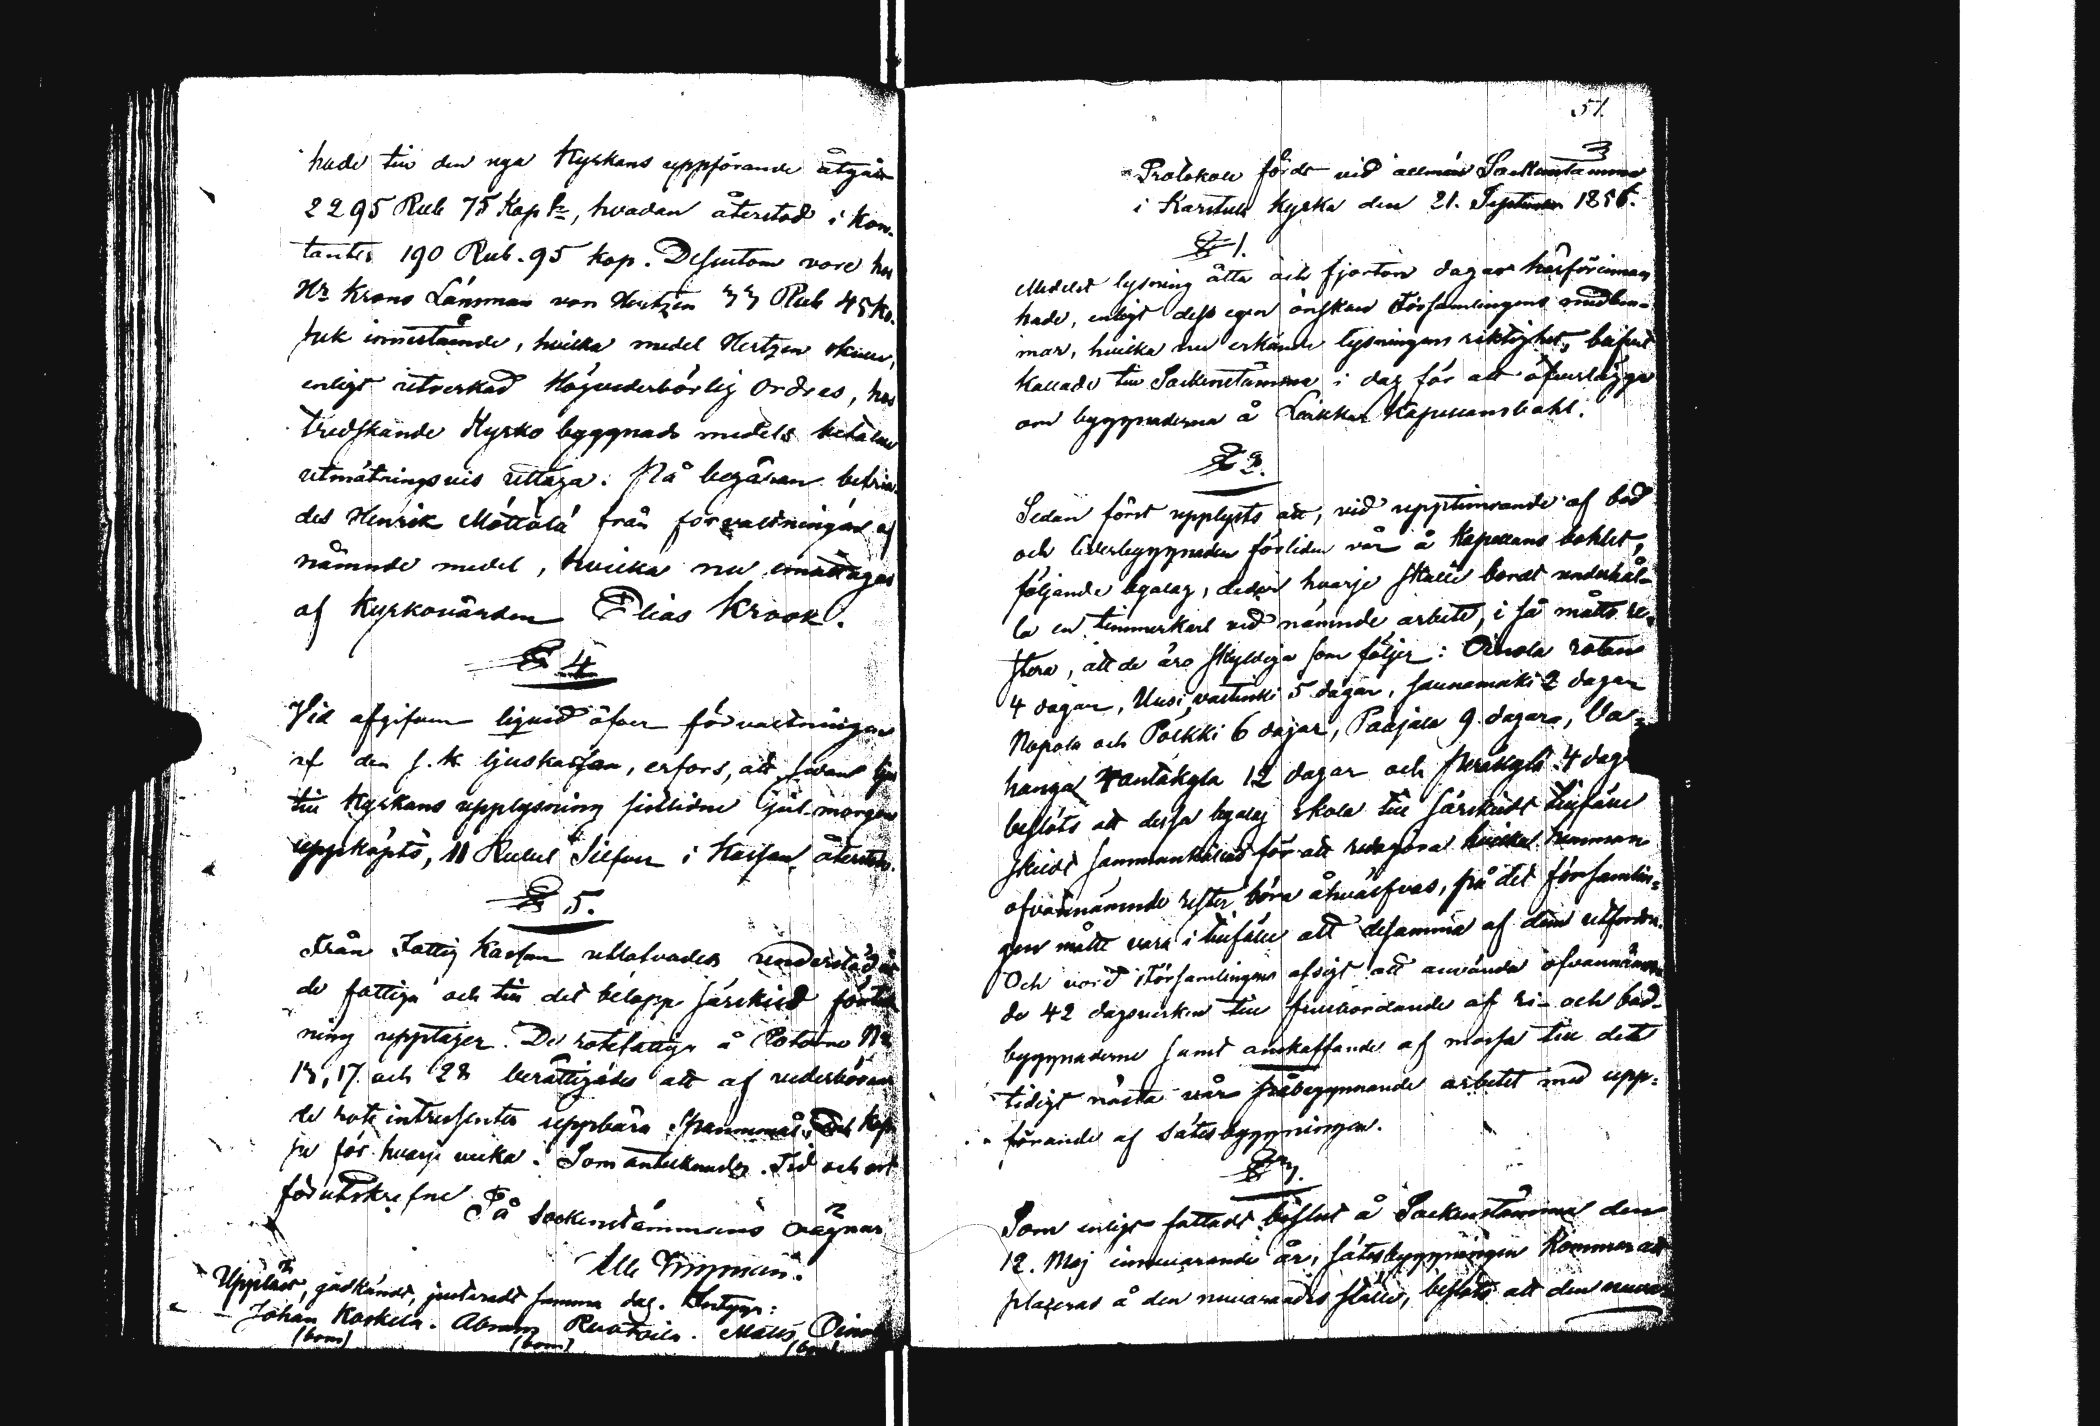 hade till den nya Kyrkans uppförande åtgått
2295 Rub 75 Kop, hvadan återstod i kon-
tanter 190 Rub. 95 kop. Dessutom vore hos
Hr Krono Länsman von Hertzen 33 Rub 45 Ko-
pek innestående, hvilka medel Hertzen skulle,
enligt utverkad Högvederbörlig Ordres, hos
tredskande Kyrko byggnads medels betalare
utmätningsvis uttaga. På begäran befria-
des Henrik Möttölä från förvaltningen af
nämnde medel, hvilka nu emottages
af Kyrkovärden Elias Krook.
§ 4
Vid afgifven liquid öfver förvaltningen
af den s. k. ljuskassan, erfors, att, sedan ljus
till Kyrkans upplysning sistlidne jul-morgon
uppköpts, 11 Rubel Silfver i Kassan återstod.
§ 5.
Från Fattig Kassan utlofvades understöd åt
de fattiga och till det belopp särskild förteck
ning upptager. De rotefattige å Rotarne No
13, 17 och 28 berättigades att af vederböran
de rote intressenter uppbära spannmål och Kap
par för hvarje vecka. Som antecknades. Tid och ort
förutskrefne
På Sockenstämmans vägnar
Uppläst, godkändt, justeradt samma dag. Intyga:
Johan Koskela. Abram Ruotoila. Matts Oino
(bom) (bom) (bom)
51.
Protokoll fördt vid allmän Sockenstämma
i Karstula Kyrka den 21. September 1856.
§ 1.
Medelst lysning åtta och fjorton dagar härförinnan
hade, enligt dess egen önskan Församlingens medlem-
mar, hvilka nu erkände lysningens riktighet, blifvit
kallade till Sockenstämma i dag för att öfverlägga
om byggnaderna å Leikkar Kapellansbohl.
§ 2.
Sedan först upplysts att, vid upptimrande af bod
och liderbyggnaden förliden vår å Kapellans bohlet,
följande byalag, deder hvarje skulle bordt underhål-
la en timmerkarl vid nämnde arbete, i så måtto re-
stera, att de äro skyldiga som följer: Oinola rotan
4 dagar, Uusi, vastinki 5 dagar, Saunamäki 2 dagar
Nopola och Pölkki 6 dagar, Paajala 9 dagar, Va-
hanga Rantakylä 12 dagar och Peräkylä 4 dagar
beslöts att dessa byalag skola till särskildt tillfälle
skildt sammankallas för att redogöra hvilka hemman
ofvannämnde rester böra åhvälfvas, på det församlin-
gen måtte vara i tillfälle att desamma af dem utfordra.
Och vore Församlingens afsigt att använda ofvannämn-
de 42 dagsverken till fullbordande af ri- och bod-
byggnaderne samt anskaffande af mossa till dett
tidigt nästa vår påbegynnande arbetet med upp-
förande af sätesbyggningen.
§ 3.
Som enligt fattadt beslut å Sockenstämma den
12. Maj innevarande år, sätesbyggningen kommer att
placeras å den nuvarandes ställe, beslöts att den nuva-